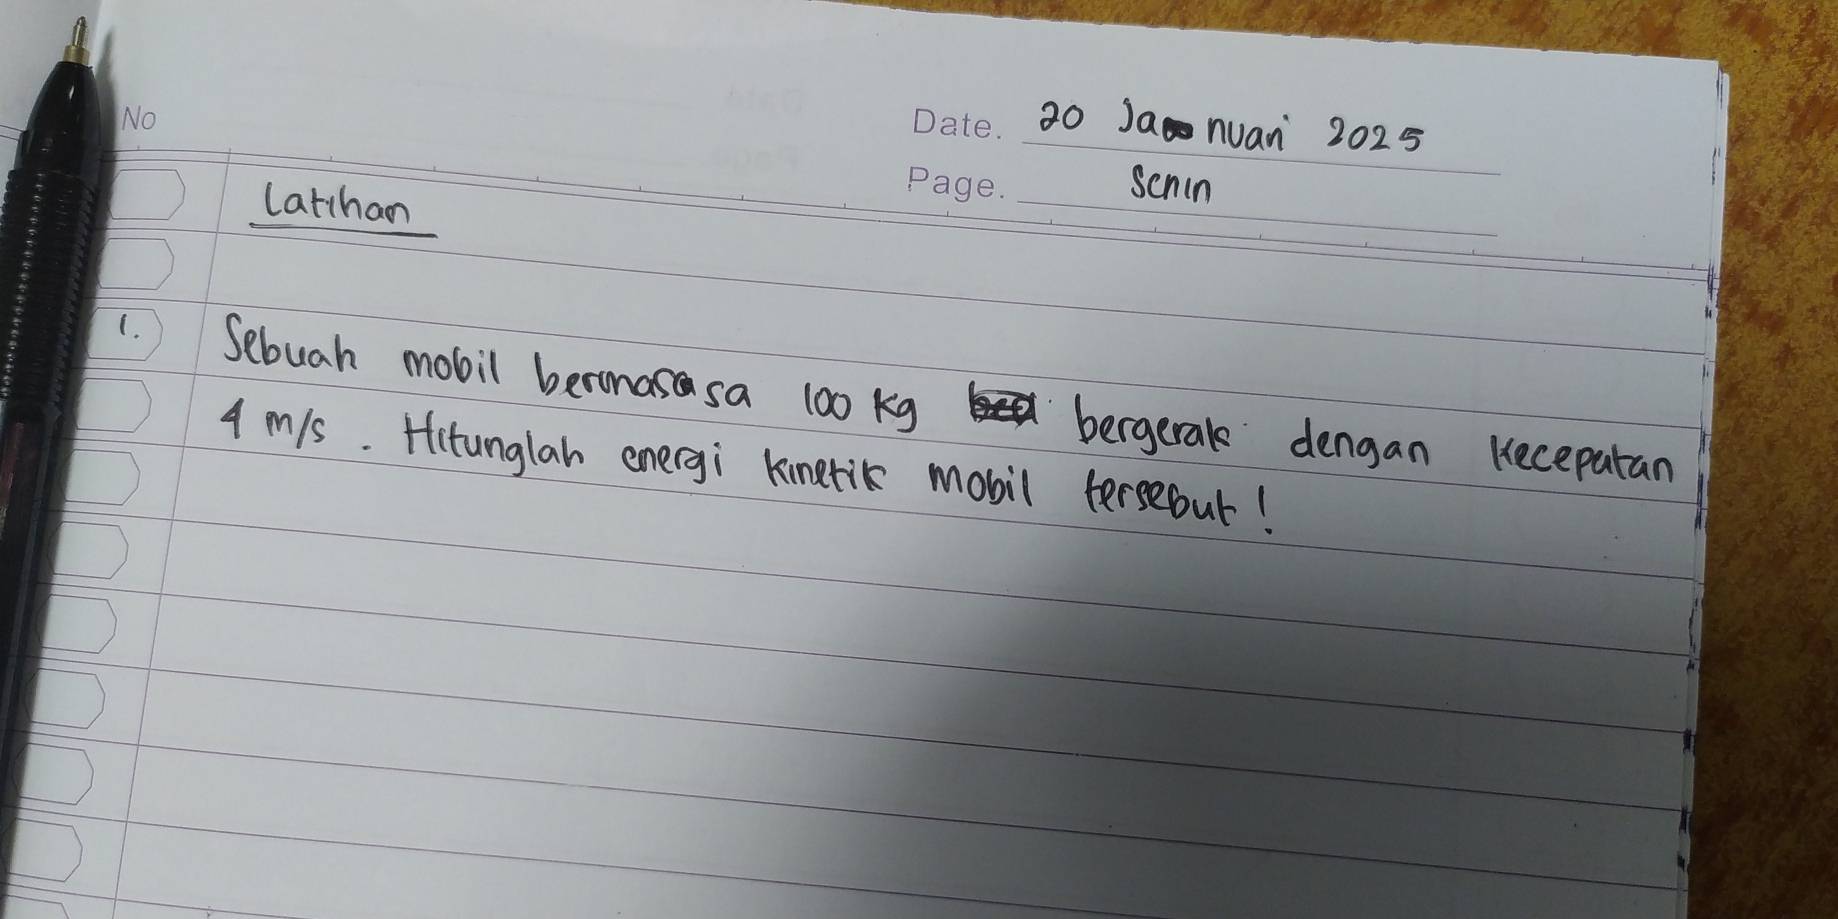 No
Date. 20 Januari 2025
Page. Senin
Latihan
1. Sebuah mobil bermasasa 100 kg bergerak dengan kecepatan
4 m/s. Hitunglah energi kinetik mobil tersebut!